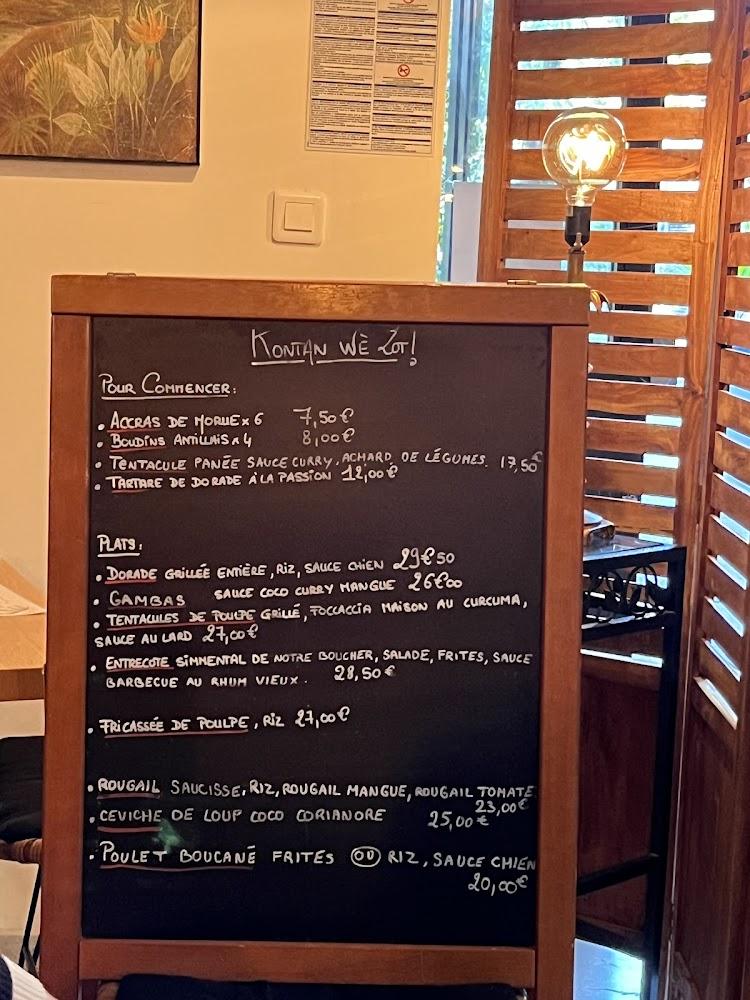 KONTAN WÈ ZOT!
POUR COMMENCER:
• ACCRAS DE MORUE x 6 7,50€
• BOUDINS ANTILLAIS x 4 8,00€
• TENTACULE PANÉE SAUCE CURRY, ACHARD DE LÉGUMES. 17,50€
• TARTARE DE DORADE À LA PASSION 12,00€
PLATS:
• DORADE GRILLÉE ENTIÈRE, RIZ, SAUCE CHIEN 29€50
• GAMBAS SAUCE COCO CURRY MANGUE 26€00
• TENTACULES DE POULPE GRILLÉ, FOCCACCIA MAISON AU CURCUMA,
SAUCE AU LARD 27,00€
• ENTRECOTE SIMMENTAL DE NOTRE BOUCHER, SALADE, FRITES, SAUCE
BARBECUE AU RHUM VIEUX. 28,50€
• FRICASSÉE DE POULPE, RIZ 27,00€
• ROUGAIL SAUCISSE, RIZ, ROUGAIL MANGUE, ROUGAIL TOMATE
23,00€
• CEVICHE DE LOUP COCO CORIANDRE 25,00€
• POULET BOUCANÉ FRITES OU RIZ, SAUCE CHIEN
20,00€